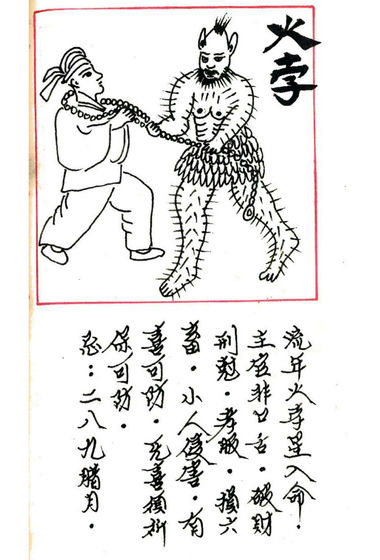 火孛
流年火孛星入命.
主官非口舌.破財
刑尅.孝服.損六
畜.小人侵害.有
喜可防.无喜須祈
保可防.
忌:二八九腊月.